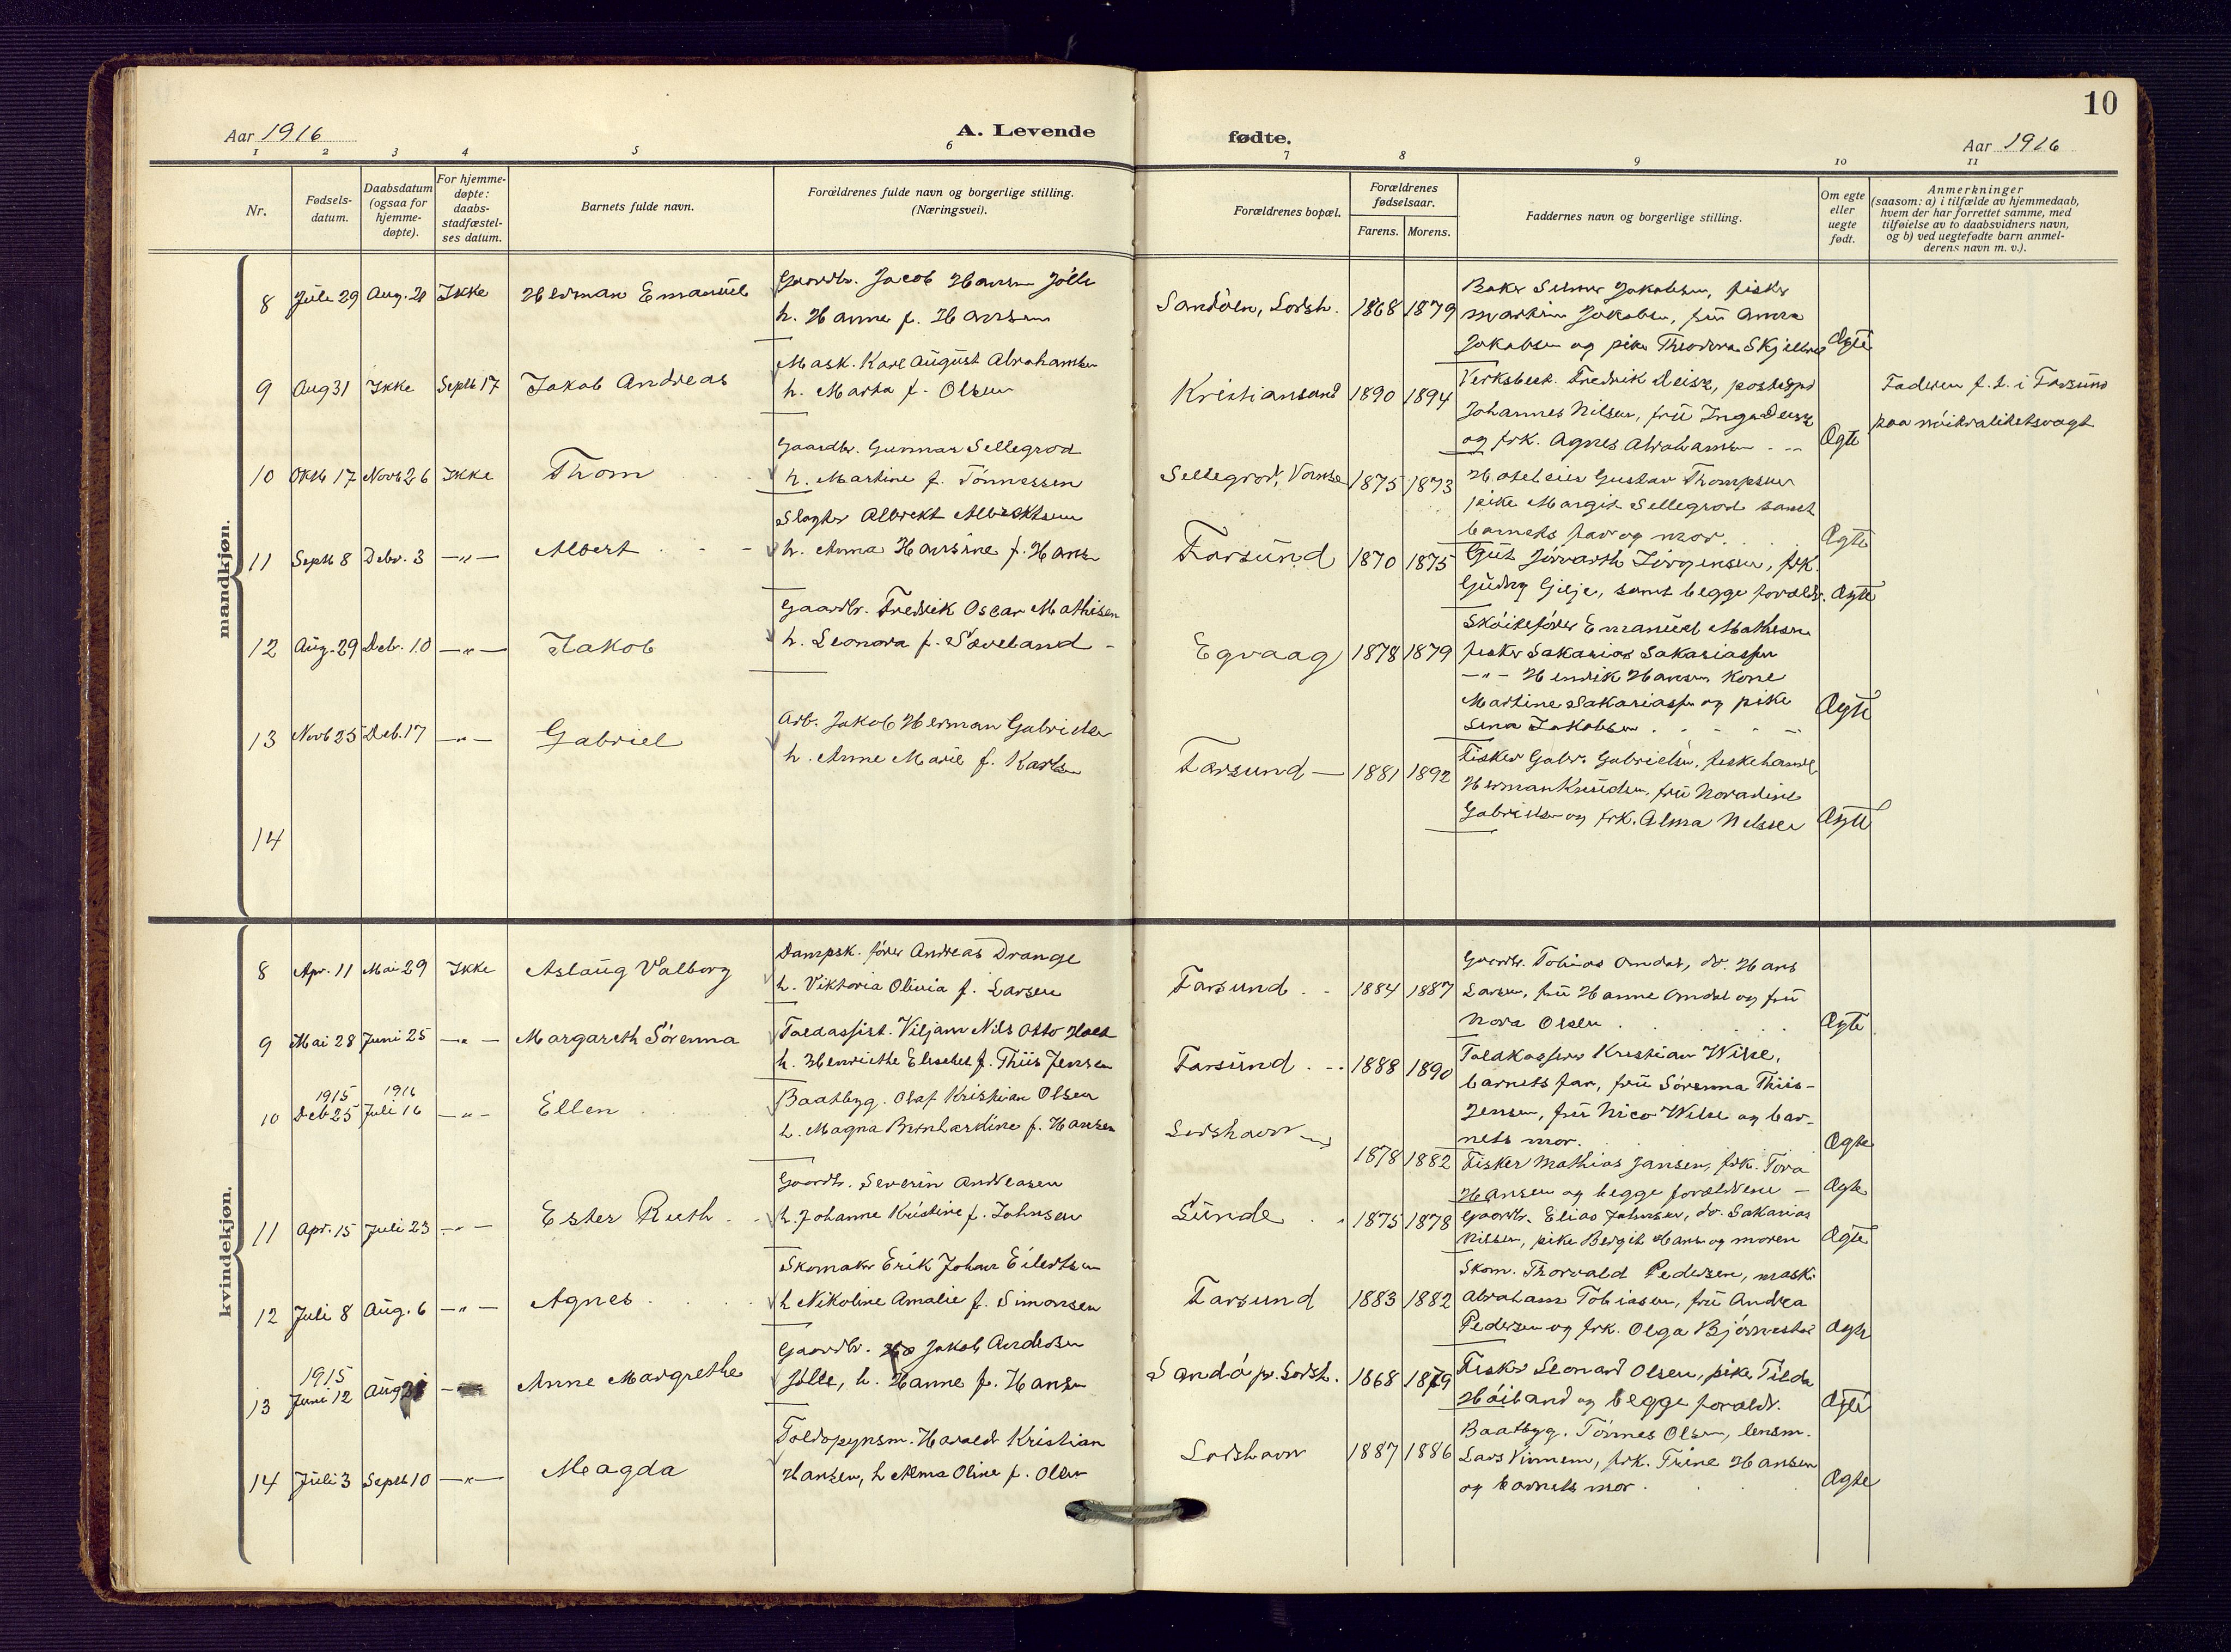 10
Aar 1916
A. Levende
fødte.
Aar 1916
1 2 3 4 5 6 7 8 9 10 11
Nr.
Fødsels-
datum.
Daabsdatum
(ogsaa for
hjemme-
døpte).
For hjemme-
døpte:
daabs-
stadfæstel-
ses datum.
Barnets fulde navn.
Forældrenes fulde navn og borgerlige stilling.
(Næringsvei).
Forældrenes bopæl.
Forældrenes
fødselsaar.
Farens. Morens.
Faddernes navn og borgerlige stilling.
Om egte
eller
uegte
født.
Anmerkninger
(saasom: a) i tilfælde av hjemmedaab,
hvem der har forrettet samme, med
tilføielse av to daabsvidners navn,
og b) ved uegtefødte barn anmel-
derens navn m. v.).
mandkjøn.
8 Juli 29 Aug. 20 Ikke Herman Emanuel
Gaardbr. Jacob Hansen Jölle
h. Hanne f. Hansen
Sandöen, Losh. 1868 1879
Baker Selmer Jakobsen, fisker
Martin Jakobsen, frü Anna
Jakobsen og pike Theodora Skjellred Ægte
9 Aug 31 Ikke Septb 17 Jakob Andreas
Mask. Karl August Abrahamsen
h. Marta f. Olsen
Kristiansand 1890 1894
Verksbest. Fredrik Deisz, postexp
Johannes Nilsen, frü Inga Deisz
og frk. Agnes Abrahamsen Ægte
Faderen f. t. i Farsund
paa nöitralitetsvagt
10 Oktb 17 Novb 26 Ikke Thom
Gaardbr. Gunnar Sellegrod
h. Martine f. Tönnessen
Sellegrod, Vanse 1875 1873
Hoteleier Gustav Thompsen
pike Margit Sellegrod samt
barnets far og mor. Ægte
11 Septb 8 Debr. 3 —"— Albert
Slagter Albrekt Albrektsen
h. Anna Hansine f. Hans
Farsünd 1870 1875
Güt Jörvarth Jörgensen, frk.
Güdny Gilje, samt begge foræld. Ægte
12 Aug. 29 Debr. 10 —"— Jakob
Gaardbr. Fredrik Oscar Mathisen
h. Leonora f. Søveland
Egvaag 1878 1879
Sköitefører Emanüel Mathisen
fisker Sakarias Sakariassen
—"— Henrik Hansen, Kone
Martine Sakariassen og pike
Lena Jakobsen Ægte
13 Novb 25 Deb. 17 —"— Gabriel
Arb. Jakob Herman Gabrielsen
h. Anne Marie f. Karlsen
Farsund — 1881 1892
Fisker Gabr. Gabrielsen, fiskehandl
Herman Knüdsen, frü Noradine
Gabrielsen og frk. Alma Nelsen Ægte
14
kvindekjøn.
8 Apr. 11 Mai 29 Ikke Aslaüg Valborg
Dampsk. fører Andreas Drange
h. Viktoria Olivia f. Larsen
Farsund 1884 1887
Gaardbr. Tobias Omdal, do. Hans
Larsen, frü Hanne Omdal og frü
Nora Olsen Ægte
9 Mai 28 Juni 25 —"— Margareth Sörenna
Toldassist. Viljam Nils Otto Holt
h. Henriethe Elisebet f. Thiis Jensen
Farsünd 1888 1890
Toldkasserer Kristian Wilse,
barnets far, frü Sörenna Thiis-
Jensen, frü Nico Wilse og bar-
nets mor. Ægte
10 1915 Deb 25 1916 Juli 16 —"— Ellen
Baatbyg. Olaf Kristian Olsen
h. Magna Bernhardine f. Hansen
Loshavn 1878 1882
Fisker Mathias Jansen, frk. Tora
Hansen og begge forældrene — Ægte
11 Apr. 15 Juli 23 —"— Ester Ruth
Gaardbr. Severin Andreasen
h. Johanne Kristine f. Johnsen
Lünde 1875 1878
Gaardbr. Elias Johnsen, do. Sakarias
Nilsen, pike Bergit Hans og moren Ægte
12 Juli 8 Aug. 6 —"— Agnes
Skomaker Erik Johan Eilertsen
h Nikoline Amalie f. Simonsen
Farsund 1883 1882
Skom. Thorvald Pedersen, mask.
Abraham Tobiasen, frü Andrea
Pedersen og frk. Olga Björnestad Ægte
13 1915 Juni 12 Aug Anne Margrethe
Gaardbr. Jakob Andersen
Jölle, h. Hanne f. Hansen
Sandö pr. Losh. 1868 1879
Fisker Leonard Olsen, pike Tilda
Höiland og begge foræld. Ægte
14 Juli 3 Septb 10 —"— Magda
Toldopynsm. Harald Kristian
Hansen, h Alma Oline f. Olsen
Loshavn 1887 1886
Baatbyg. Tönnes Olsen, lensm.
Lars Vinnem, frk. Trine Hansen
og barnets mor. Ægte